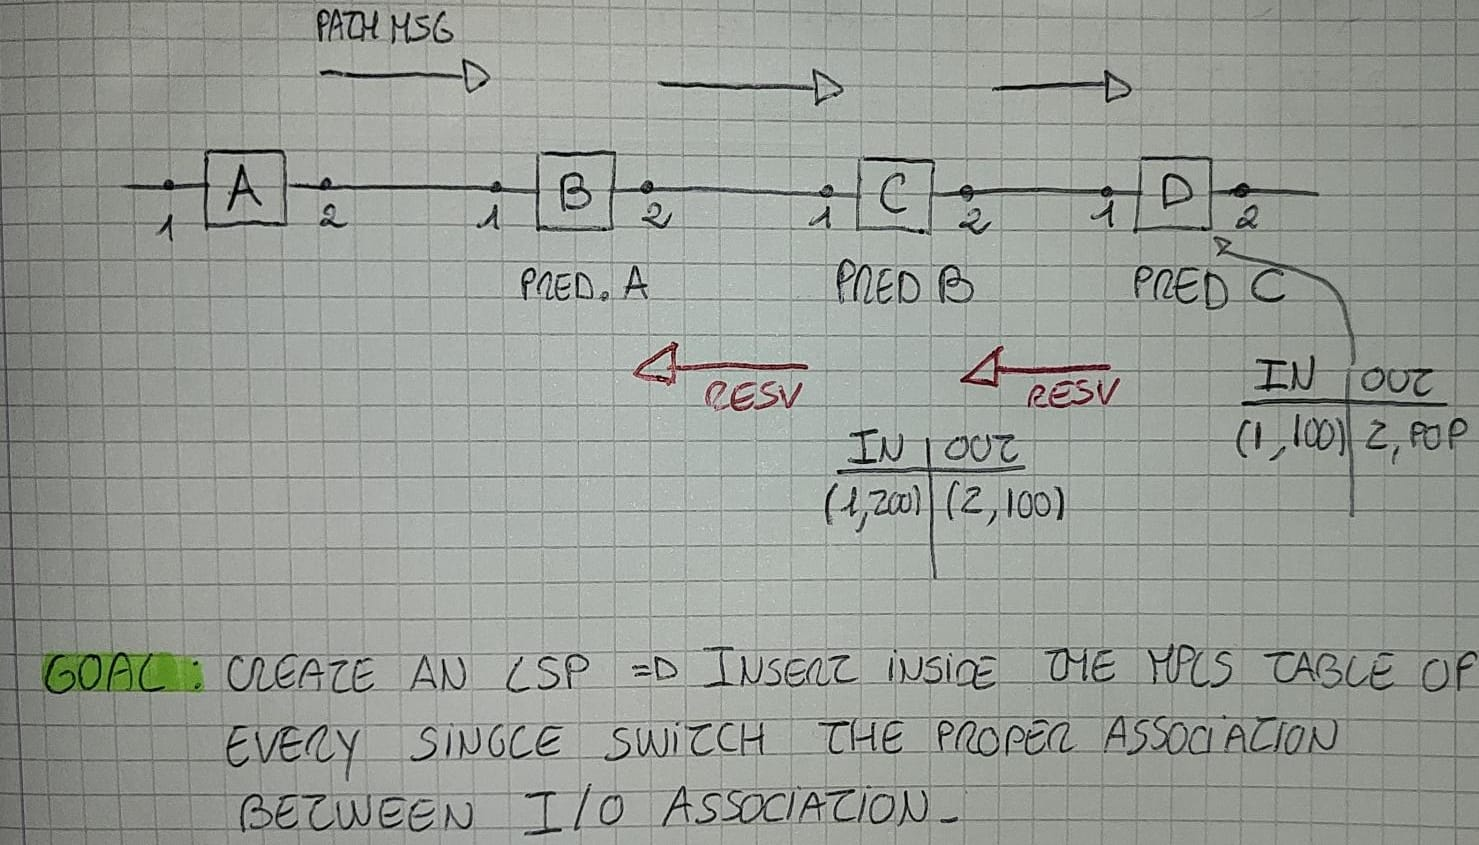 PATH MSG
A B C D
1 2 1 2 1 2 1 2
PRED. A PRED B PRED C
RESV RESV
IN OUT
(1,100) 2, POP
IN OUT
(1,200) (2,100)
GOAL: CREATE AN LSP => INSERT INSIDE THE MPLS TABLE OF
EVERY SINGLE SWITCH THE PROPER ASSOCIATION
BETWEEN I/O ASSOCIATION_